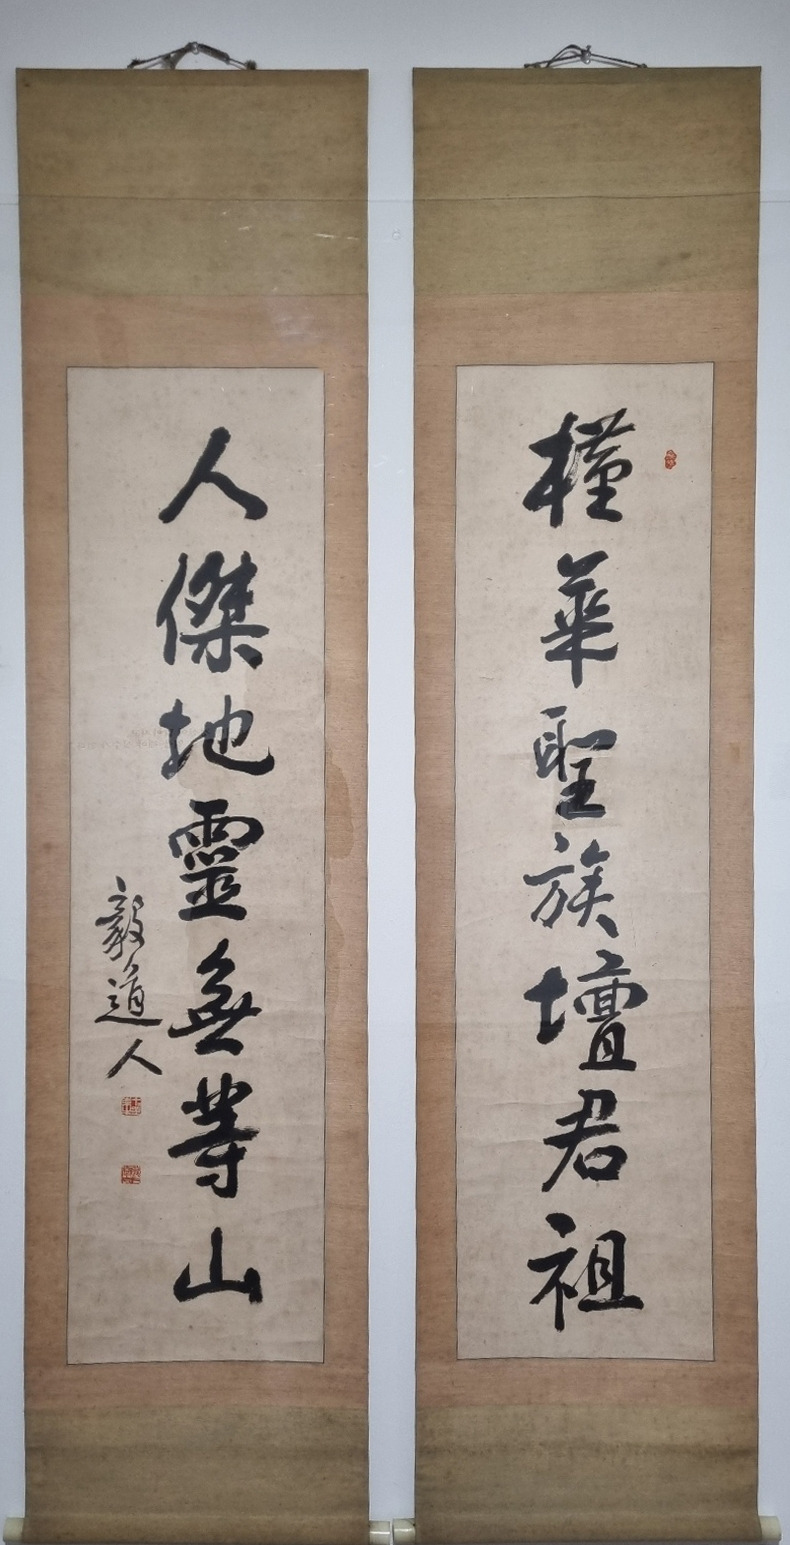 槿華聖族壇君祖
人傑地靈無等山
毅道人